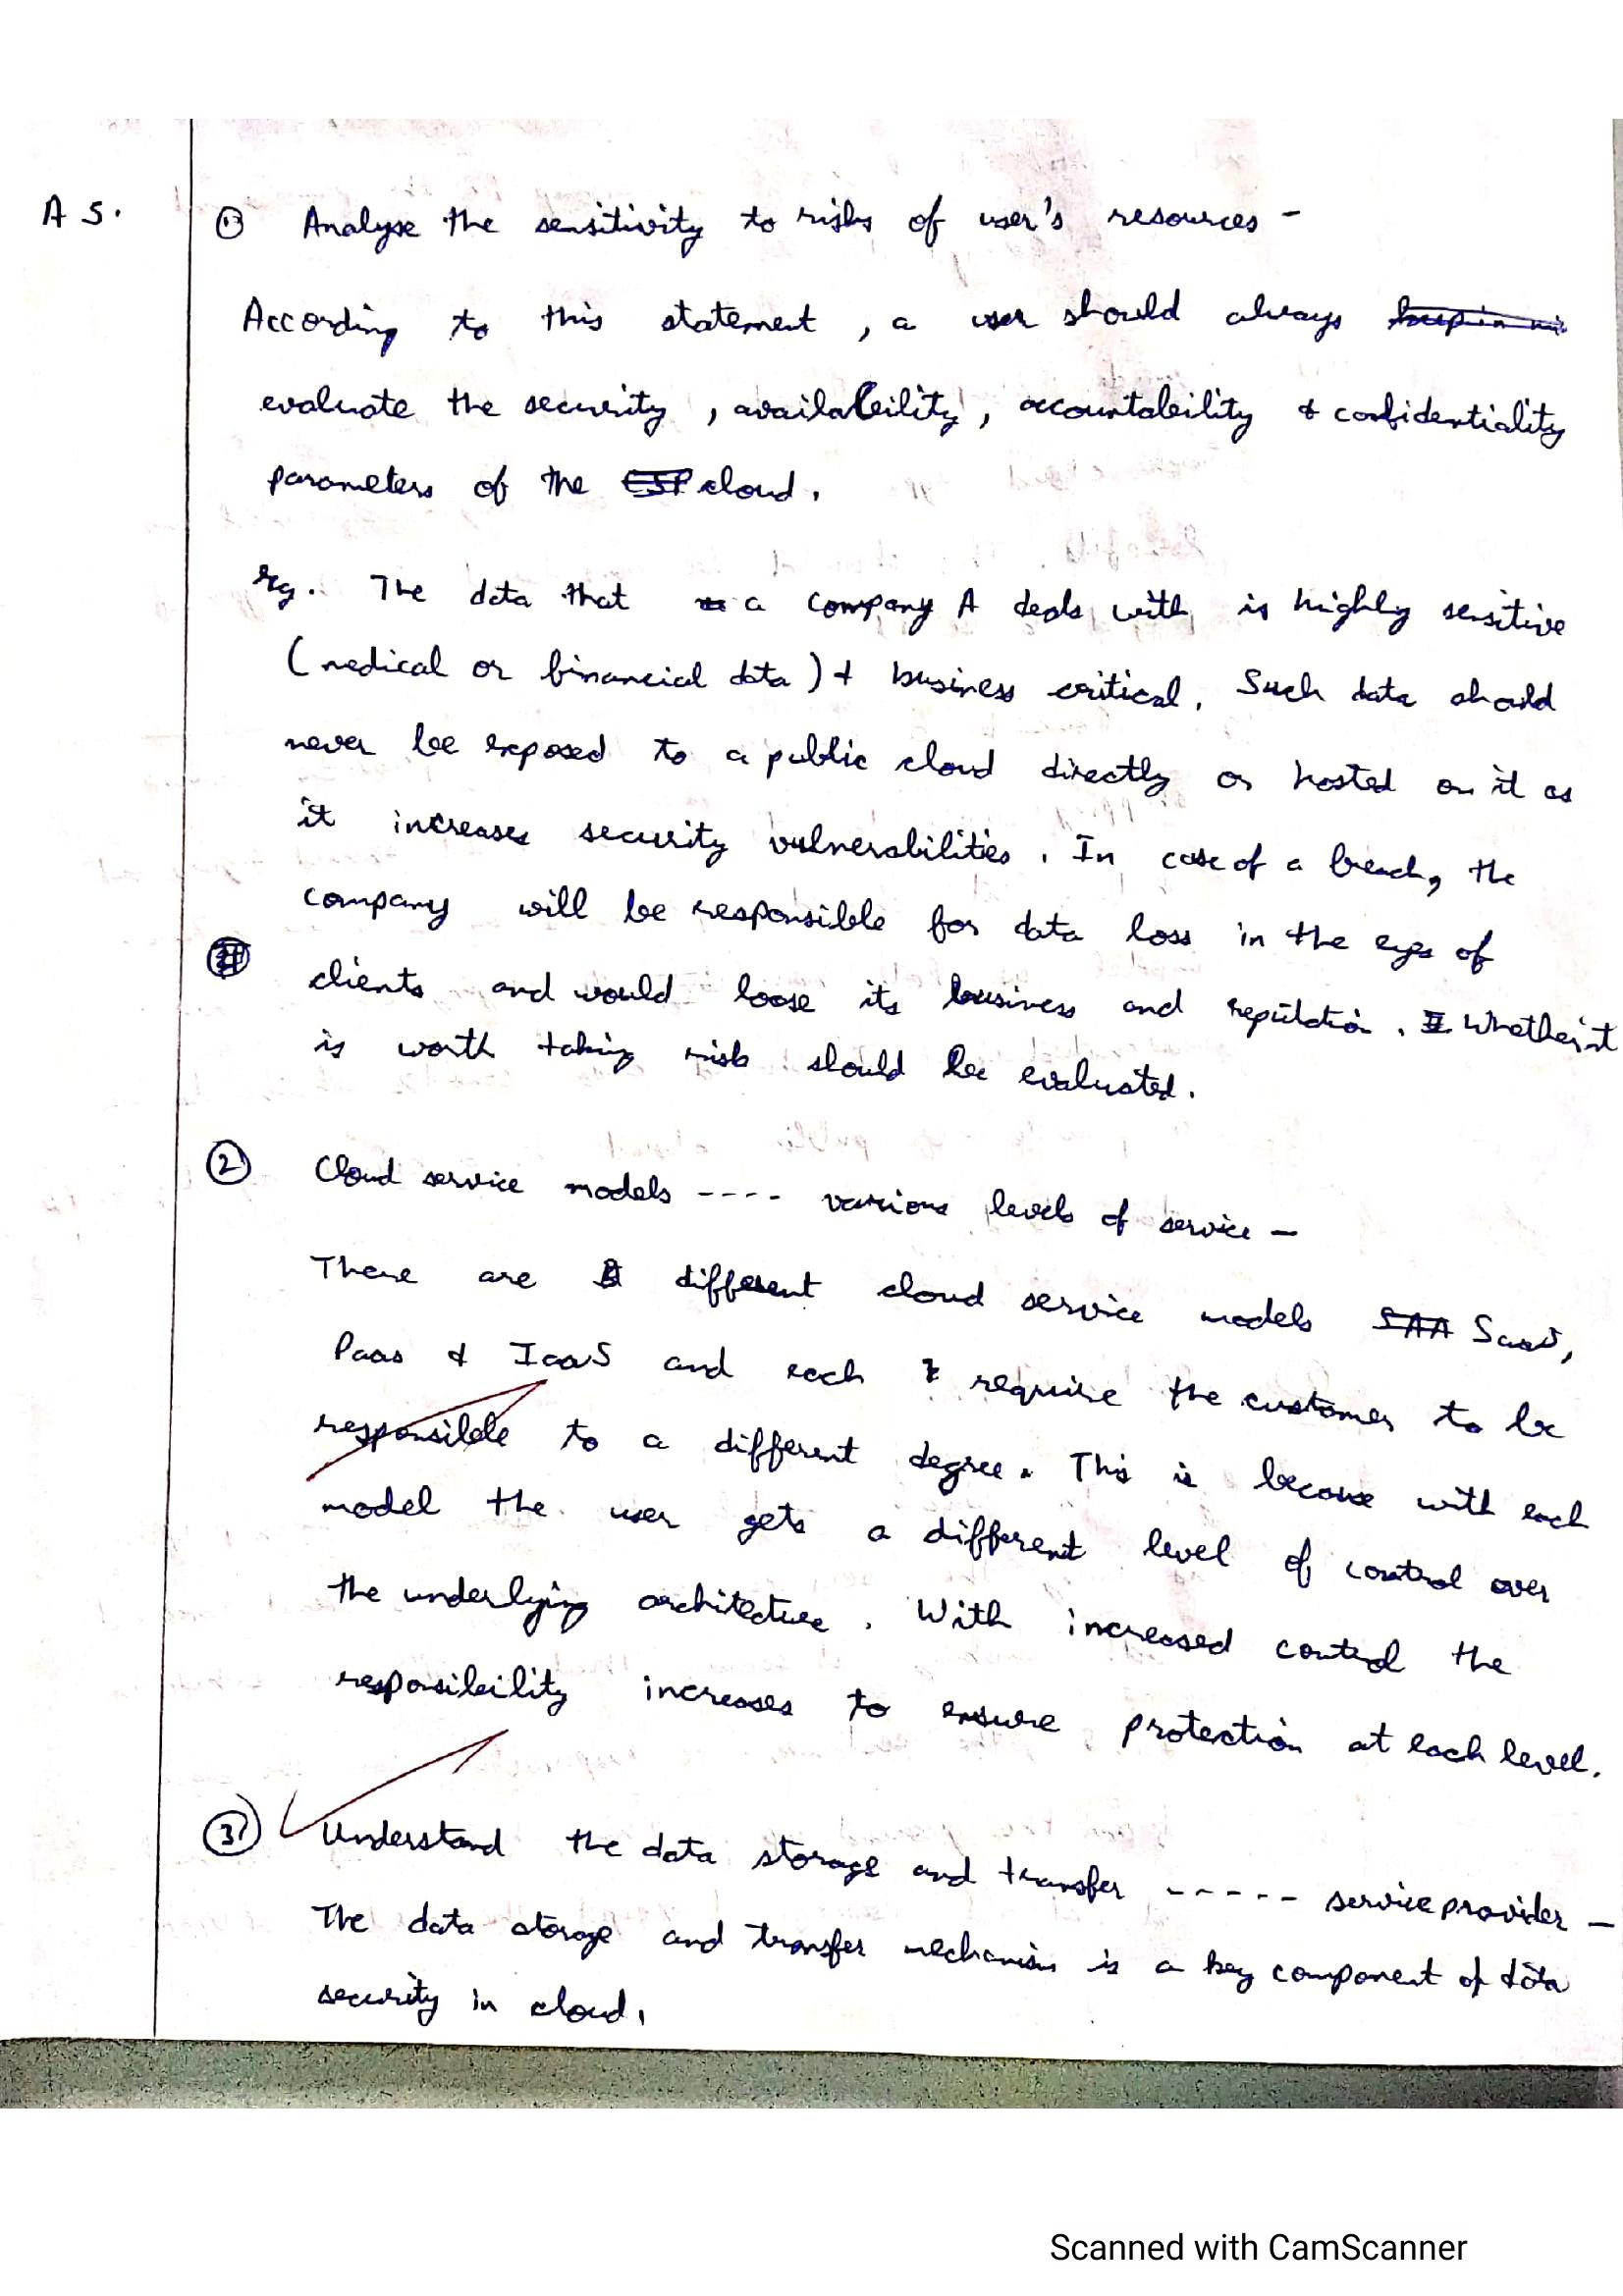 A 5.
① Analyse the sensitivity to risks of user's resources -
According to this statement, a user should always
evaluate the security, availability, accountability & confidentiality
parameters of the CSP cloud.
eg. The data that a company A deals with is highly sensitive
(medical or financial data) & business critical. Such data should
never be exposed to a public cloud directly or hosted on it as
it increases security vulnerabilities. In case of a breach, the
company will be responsible for data loss in the eyes of
clients and would loose its business and reputation. Whether it
is worth taking risk should be evaluated.
② Cloud service models ---- various levels of service -
There are different cloud service models SAA SaaS,
Paas & IaaS and each require the customer to be
responsible to a different degree. This is because with each
model the user gets a different level of control over
the underlying architecture. With increased control the
responsibility increases to ensure protection at each level.
③ Understand the data storage and transfer ----- service provider -
The data storage and transfer mechanism is a key component of data
security in cloud.
Scanned with CamScanner